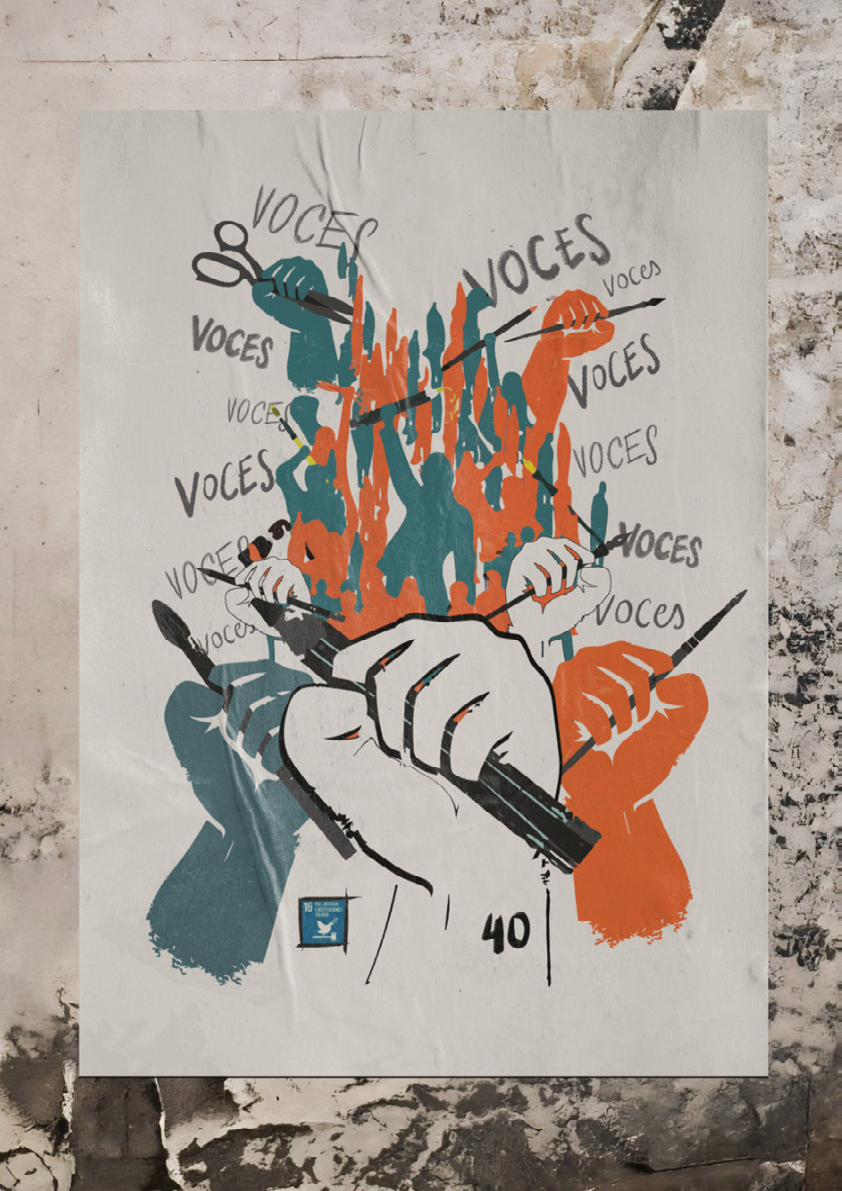 VOCES
VOCES
voces
VOCES
VOCES
VOCES
VOCES
VOCES
VOCES
VOCES
Voces
voces
16 PAZ, JUSTICIA
E INSTITUCIONES
SÓLIDAS
40